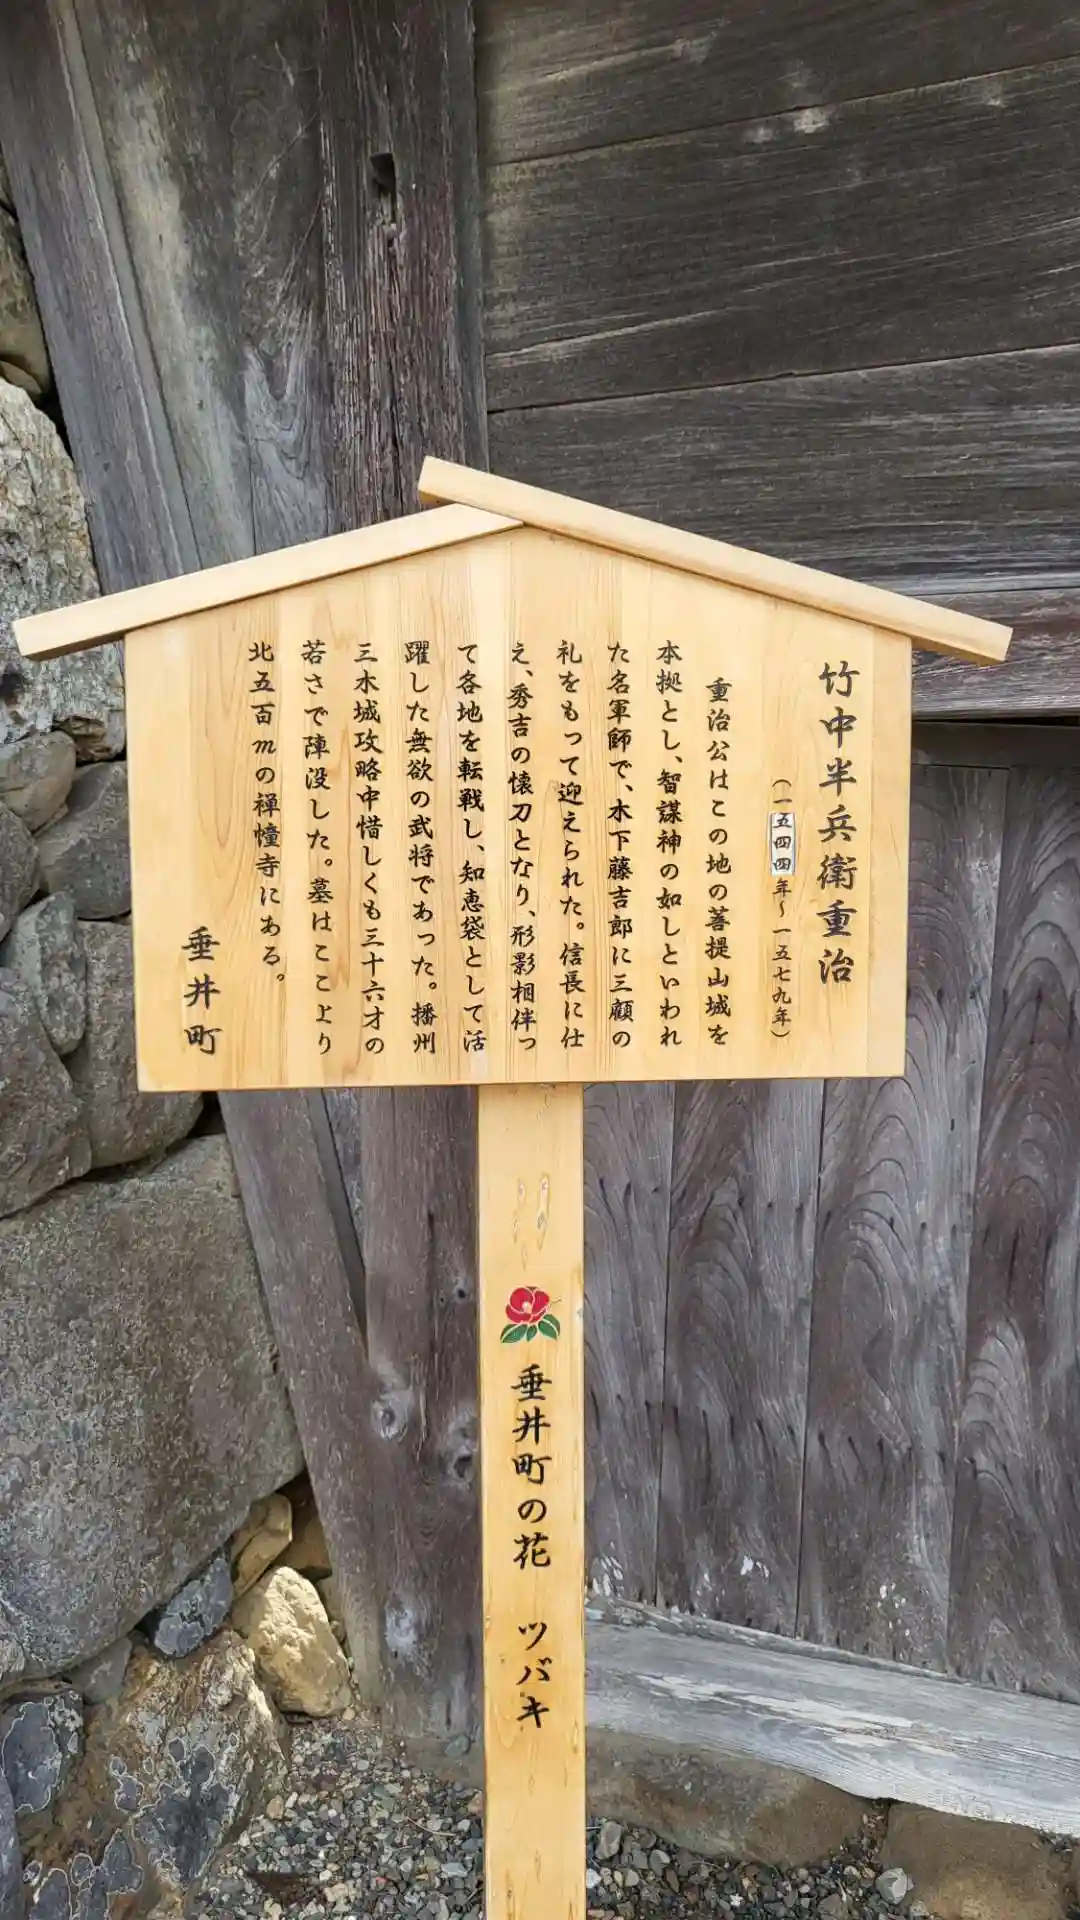 竹中半兵衛重治
（一五四四年～一五七九年）
重治公はこの地の菩提山城を
本拠とし、智謀神の如しといわれ
た名軍師で、木下藤吉郎に三顧の
礼をもって迎えられた。信長に仕
え、秀吉の懐刀となり、形影相伴っ
て各地を転戦し、知恵袋として活
躍した無欲の武将であった。播州
三木城攻略中惜しくも三十六才の
若さで陣没した。墓はここより
北五百mの禅幢寺にある。
垂井町
垂井町の花 ツバキ